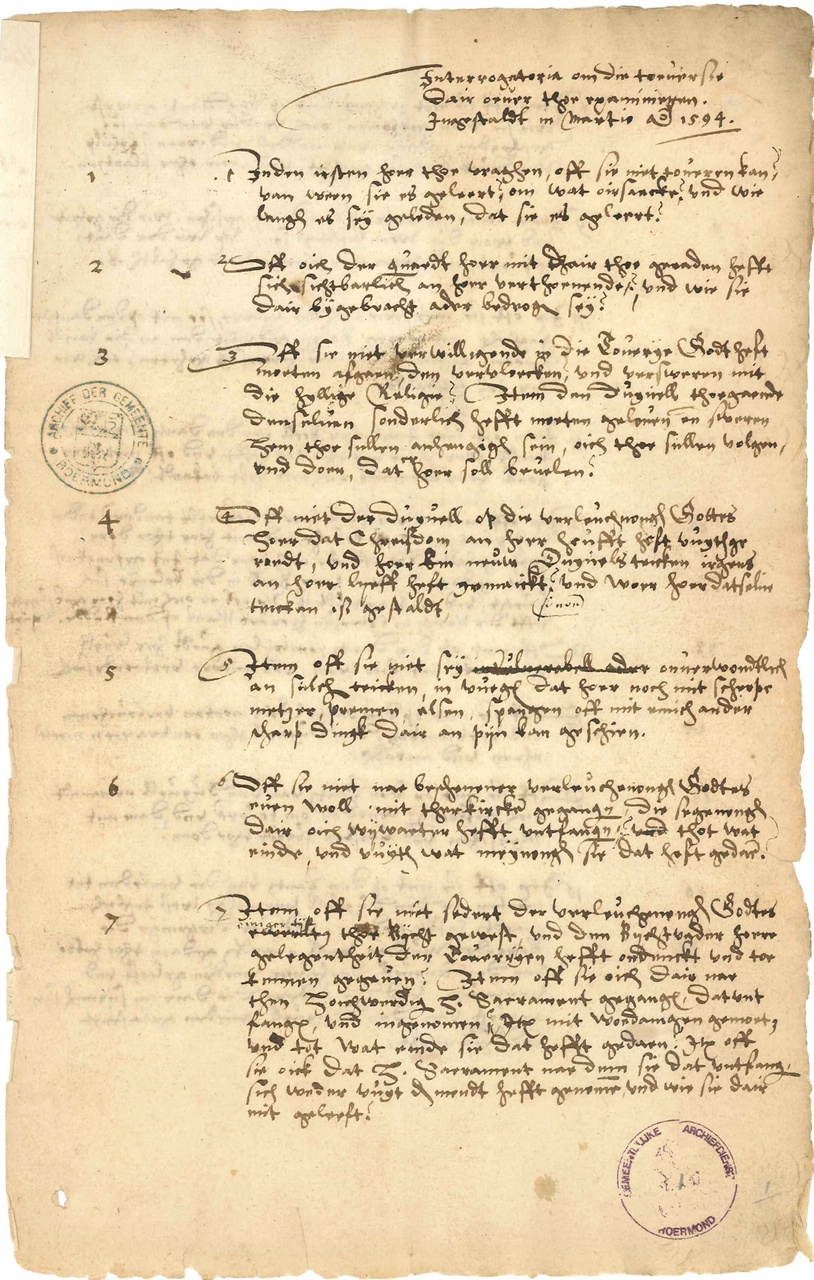 Interrogatoria om die toeuersie
dair oeuer thoe examinieren.
Ingestaldt in Martio aº 1594.
1 1 Inden irsten hoer thoe vraghen, oft sie niet toueren kan,
van weem sie es geleert, om wat oirsaecke, und wie
langh es sey geleden, dat sie es geleert?
2 2 Oft oich der quaedt hoer mit thair thoe geraden hefft
sich sichtbarlich an hoer verthoenende, und wie sie
dair bygebracht ader bedrogen sey?
3 3 Oft sie niet verwilligende in die Touerye Godt heft
moeten afgaen, den verloecken, und versweren mit
die hyllige Religie? Item den duyuell thoegaende
denseluen sonderlich hefft moeten gelouen en sweren
hem thoe sullen anhengigh sein, oich thoe sullen volgen,
und doen, dat hoer soll beuelen?
4 4 Oft niet der duyuell op die verleuchnongh Gottes
hoer dat Chresdom an hoer heufft heft vuythge
, und hoer ein neuw Duyuels teicken irgens
an hoer lyeff heft gemaickt, und woer hoer datselue
teicken is gestaldt,
5 5 Item oft sie niet sey onuerwondtlich
an sulch teicken, in vuegh dat hoer noch mit scherpe
metzer, premen, elsen, spangen oft mit einich ander
scharp dingk dair an pijn kan geschien.
6 6 Oft sie niet nae beschener verleuchenongh Godtes
euen woll mit ther kircken gegangen, die segenongh
dair oich wywaeter hefft untfangen, und thot wat
einde, und vuyth wat meynongh sie dat heft gedaen?
7 7 Item oft sie niet sedert der verleuchgenongh Godtes
thoe Bycht gewest, und den Bychtuader hoere
gelegentheit der Toueryen hefft ondeckt und toe
kennen gegeuen? Item oft sie oich dair nae
then hoichwerdig H. Sacrament gegangen, dat unt
fangen, und ingenomen, Ite mit
und tot wat einde sie dat hefft gedaen? Ite oft
sie oick dat H. Sacrament nae dem sie dat untfang.
sich weder vuyt den mondt hefft genomen, und wie sie dair
mit geleeft?
ARCHIEF DER GEMEENTE
ROERMOND
GEMEENTELIJKE ARCHIEFDIENST
ROERMOND
1